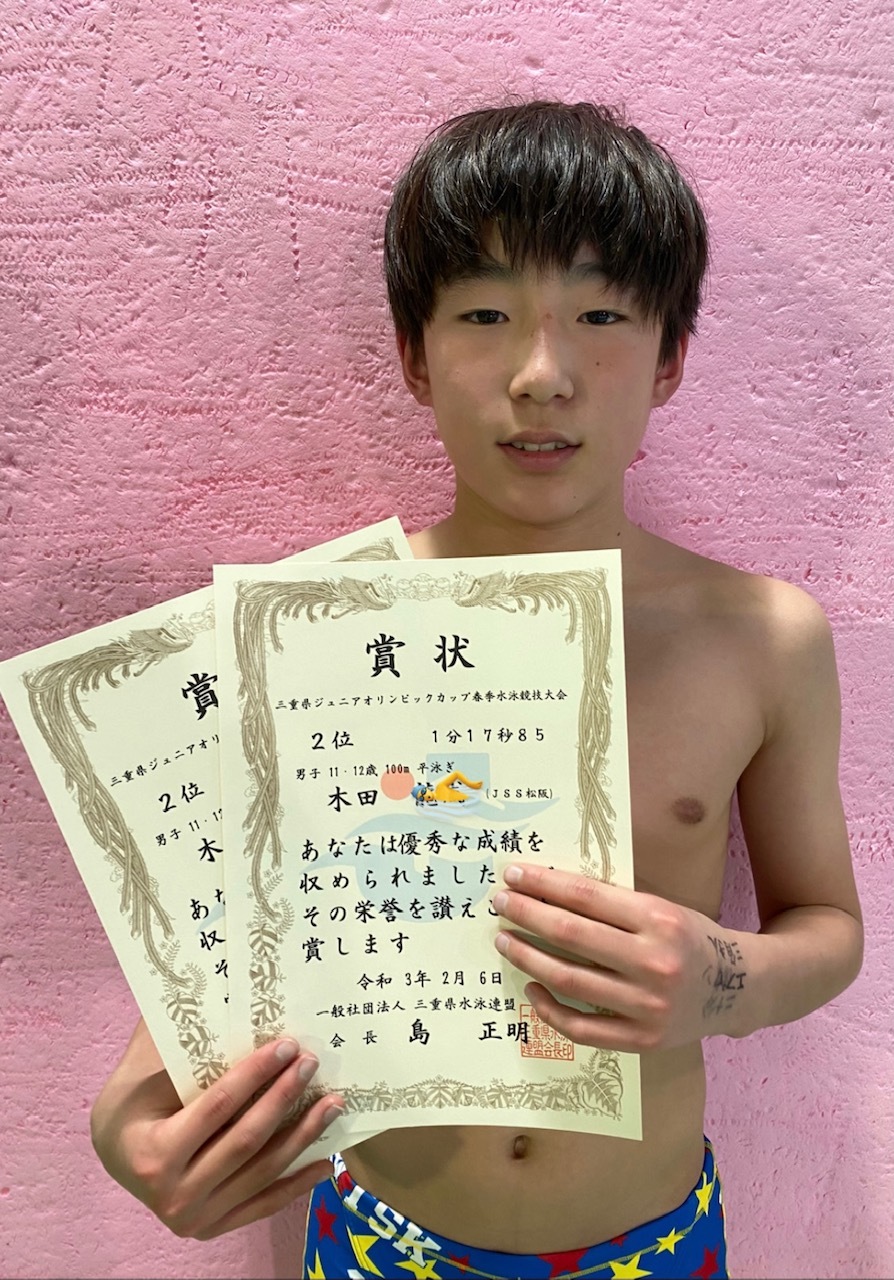 賞状
三重県ジュニアオリンピックカップ春季水泳競技大会
2位 1分17秒85
男子 11・12歳 100m 平泳ぎ
木田 (JSS松阪)
あなたは優秀な成績を
収められました
その栄誉を讃え
賞します
令和 3年 2月 6日
一般社団法人 三重県水泳連盟
会長 島 正明
賞
三重県ジュニアオリ
2位
男子 11・12
木
あ
収
そ